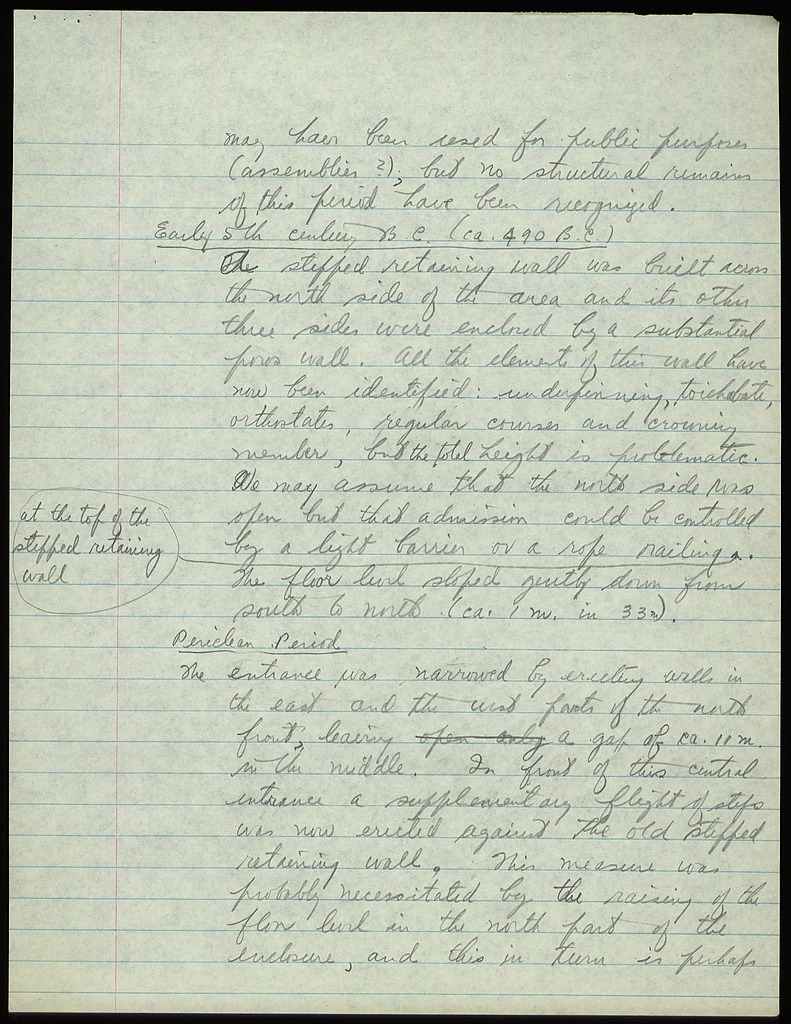 may have been used for public purposes
(assemblies ?); but no structural remains
of this period have been recognized.
Early 5th century B.C. (ca. 490 B.C.)
The stepped retaining wall was built across
the north side of the area and its other
three sides were enclosed by a substantial
poros wall. All the elements of this wall have
now been identified: underpinning, toichobate,
orthostates, regular courses and crowning
member, but the total height is problematic.
We may assume that the north side was
open but that admission could be controlled
by a light barrier or a rope railing.
at the top of the
stepped retaining
wall
The floor level sloped gently down from
south to north (ca. 1 m. in 33m).
Periclean Period
The entrance was narrowed by erecting walls in
the east and the west parts of the north
front, leaving open only a gap of ca. 11 m.
in the middle. In front of this central
entrance a supplementary flight of steps
was now erected against the old stepped
retaining wall. This measure was
probably necessitated by the raising of the
floor level in the north part of the
enclosure, and this in turn is perhaps